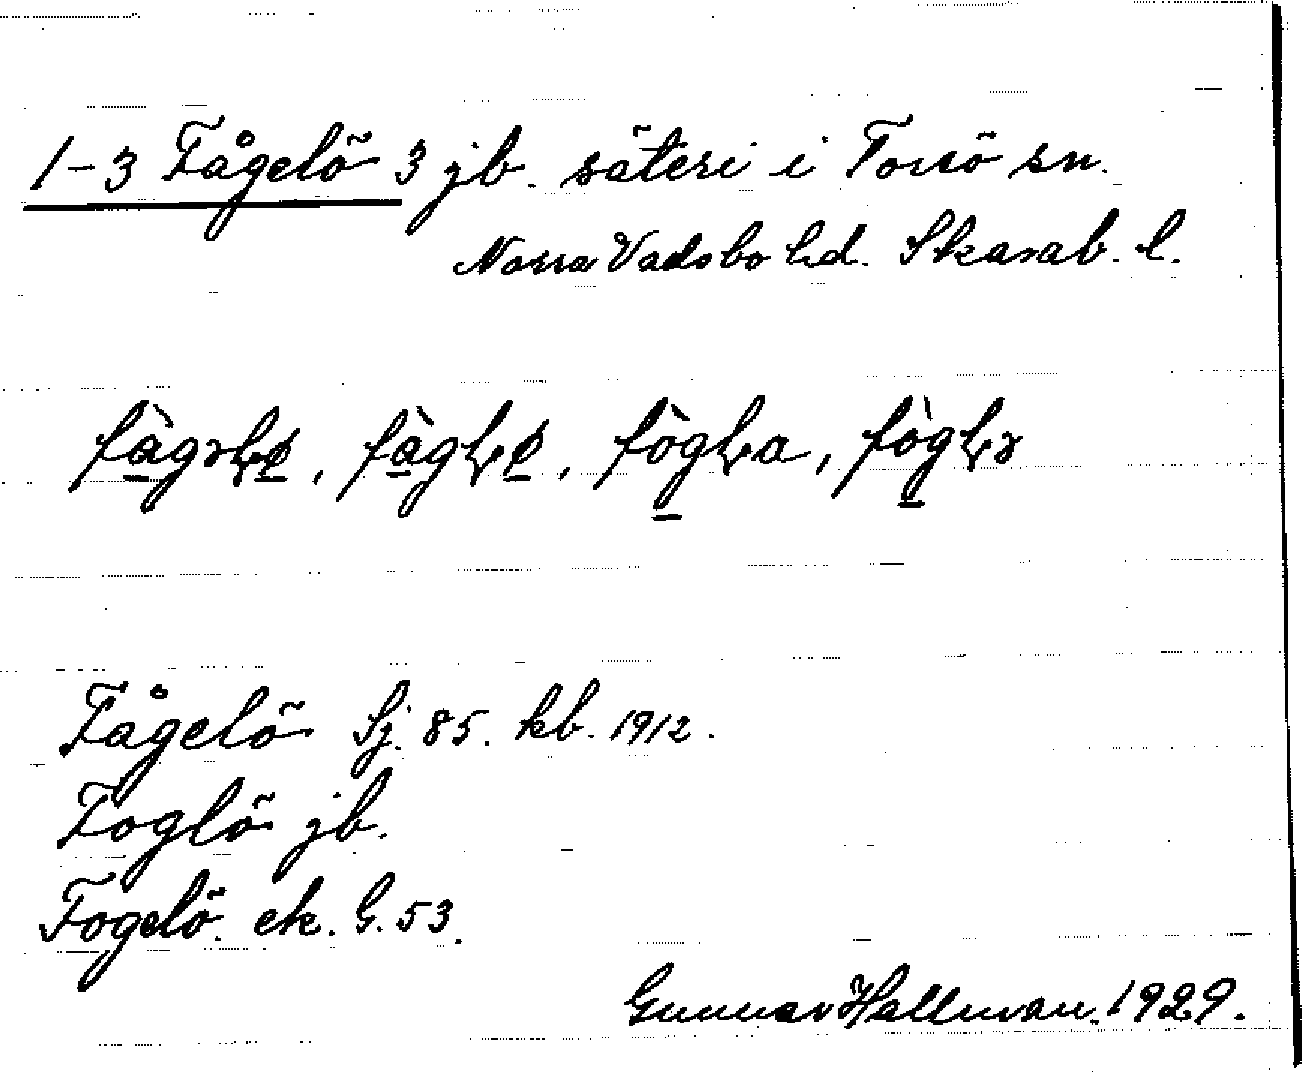 1-3 Fågelö 3 jb. säteri i Torsö sn.
Norra Vadsbo hd. Skarab. l.
Fågelö Sj. 85. kb. 1912.
Foglö jb.
Fogelö. ek. G. 53.
Gunnar Hallman. 1929.